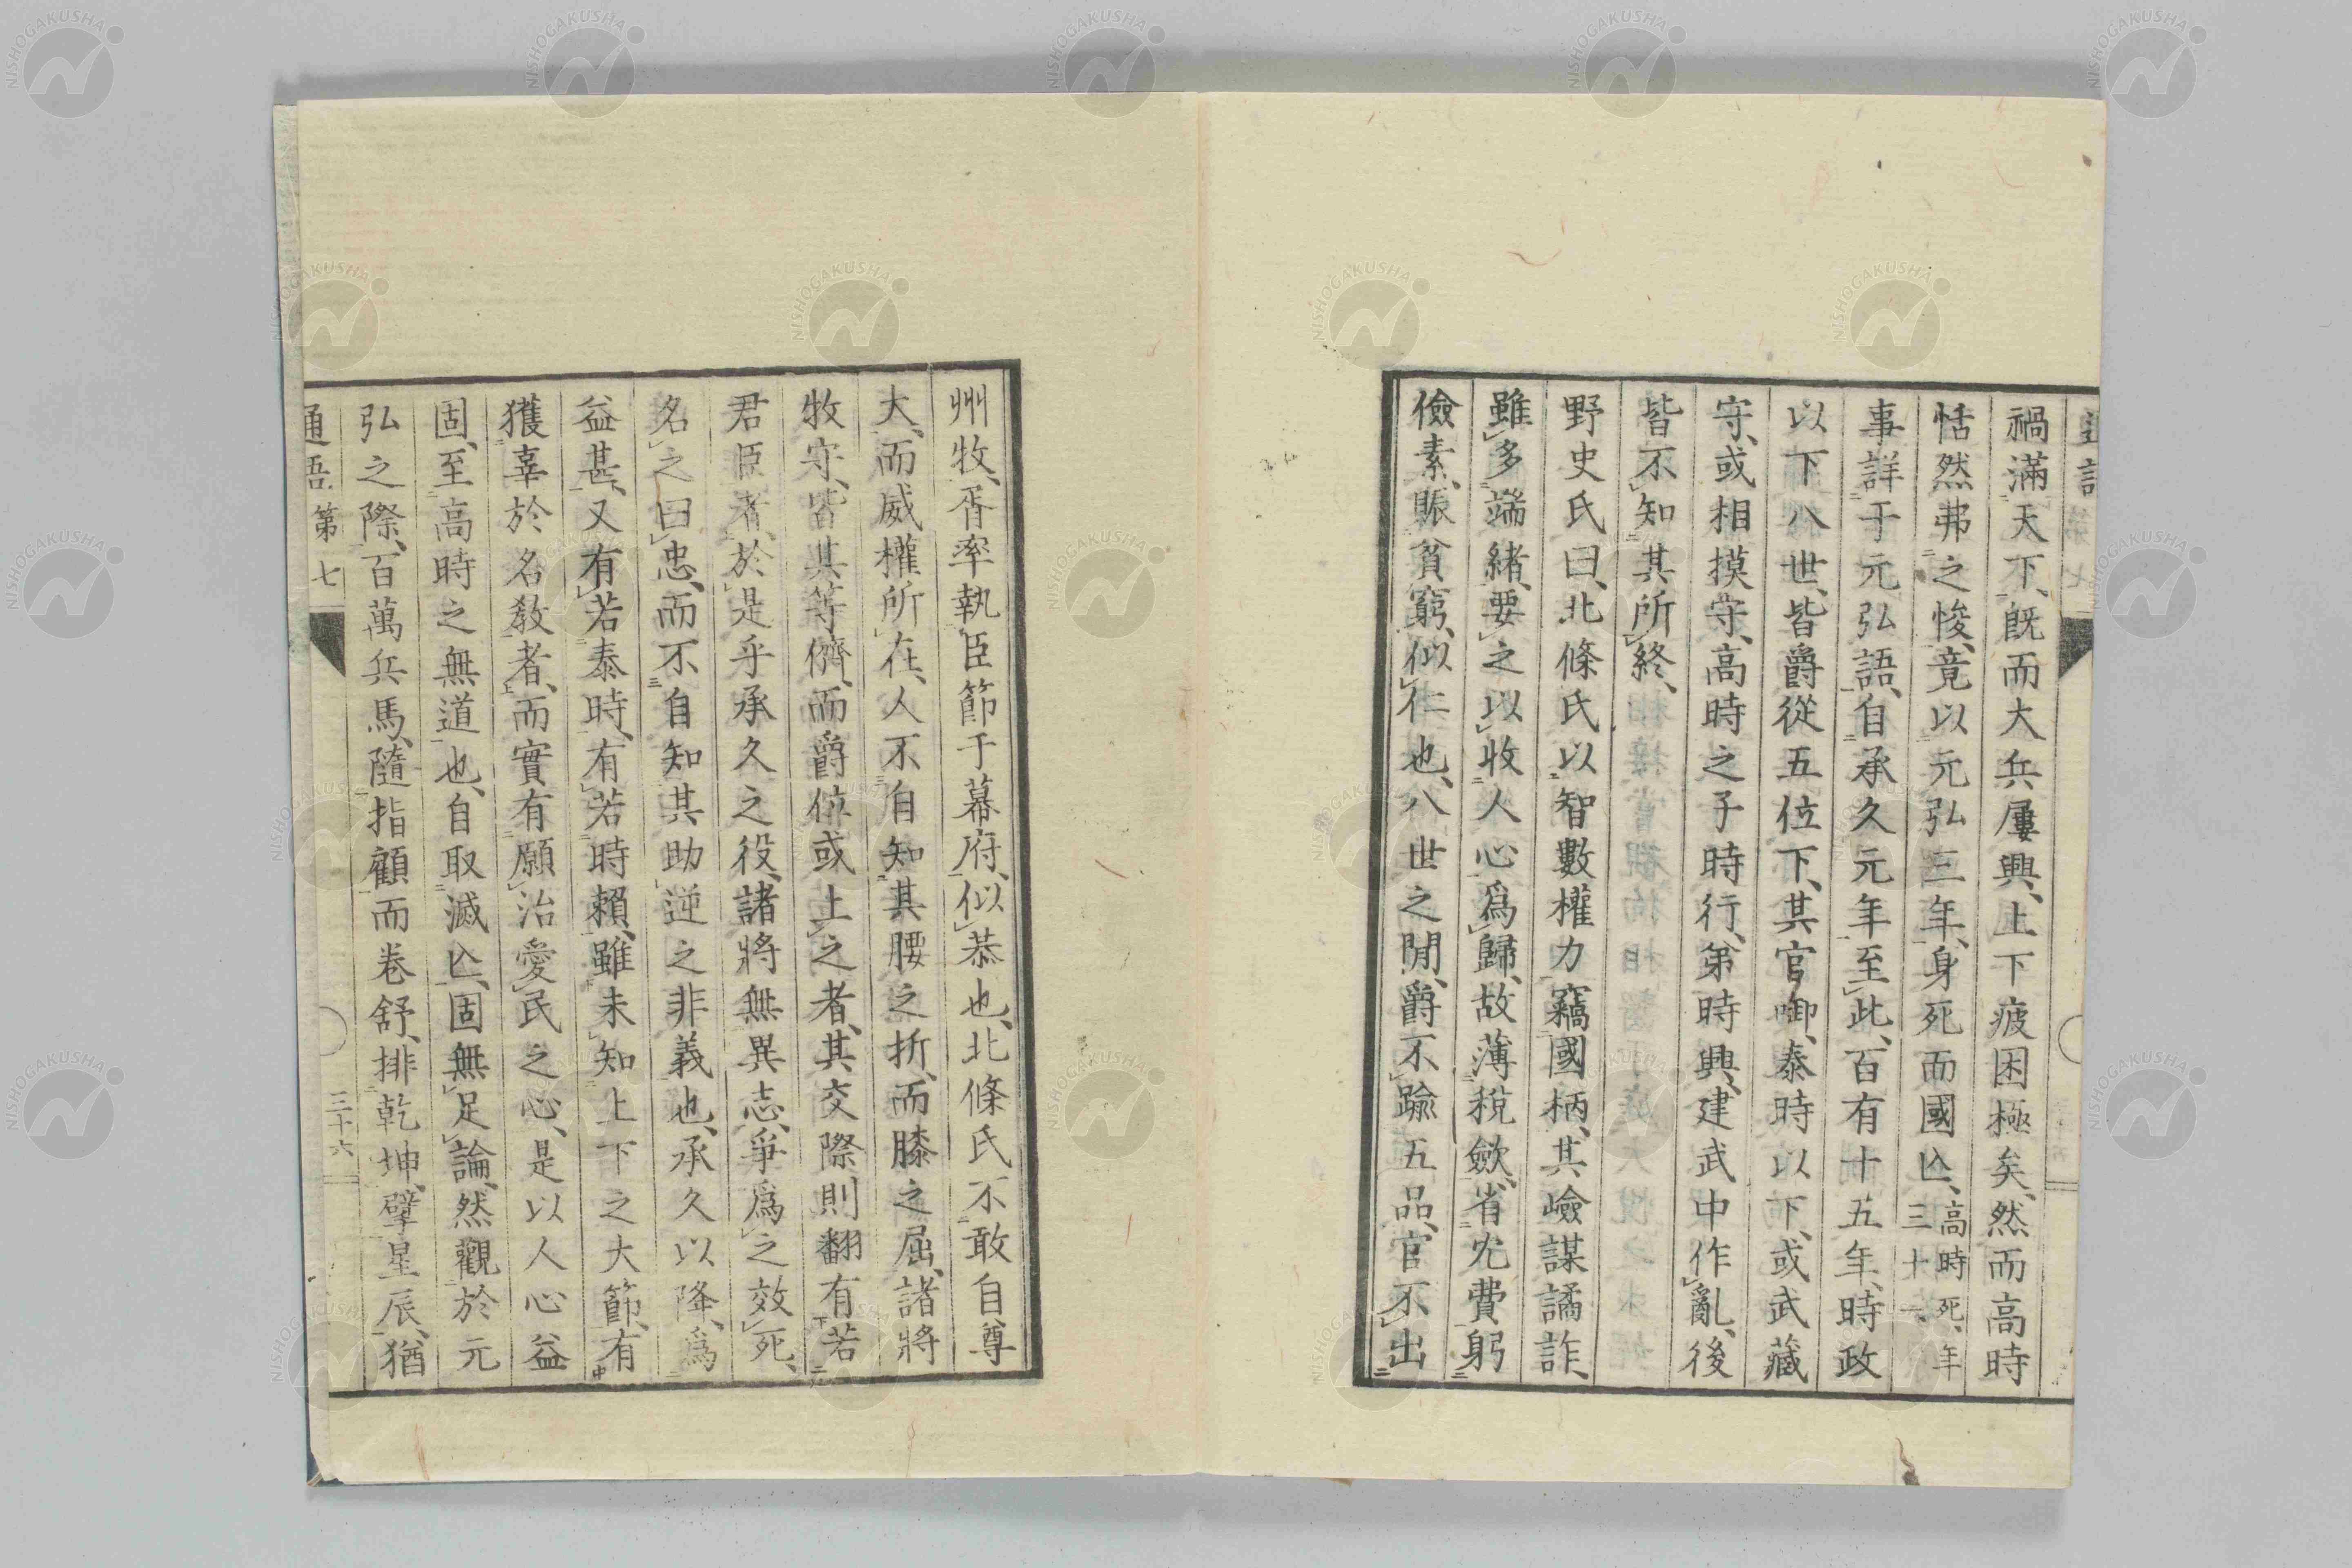 禍滿天下、既而大兵屢興、上下疲困極矣、然而高時
恬然弗之悛、竟以元弘三年、身死而國亾、高時死、年三十一、
事詳于元弘語、自承久元年至此、百有十五年、時政
以下八世、皆爵從五位下、其官啣、泰時以下、或武藏
守、或相摸守、高時之子時行、弟時興、建武中作亂、後
皆不知其所終、
野史氏曰、北條氏以智數權力竊國柄、其嶮謀譎詐、
雖多端緒、要之以收人心爲歸、故薄稅歛、省冗費、躬
儉素、賑貧窮、似仁也、八世之間、爵不踰五品、官不出
州牧、胥率執臣節于幕府、似恭也、北條氏不敢自尊
大、而威權所在、人不自知其腰之折、而膝之屈、諸將
牧守、皆其等儕、而爵位或上之者、其交際則翻有若
君臣者、於是乎承久之役、諸將無異志、爭爲之效死、
名之曰忠、而不自知其助逆之非義也、承久以降、爲
益甚、又有若泰時、有若時賴、雖未知上下之大節、有
獲辜於名敎者、而實有願治愛民之心、是以人心益
固、至高時之無道也、自取滅亾、固無足論、然觀於元
弘之際、百萬兵馬、隨指顧而卷舒、排乾坤、擘星辰、猶
通語第七
三十六
NISHOGAKUSHA